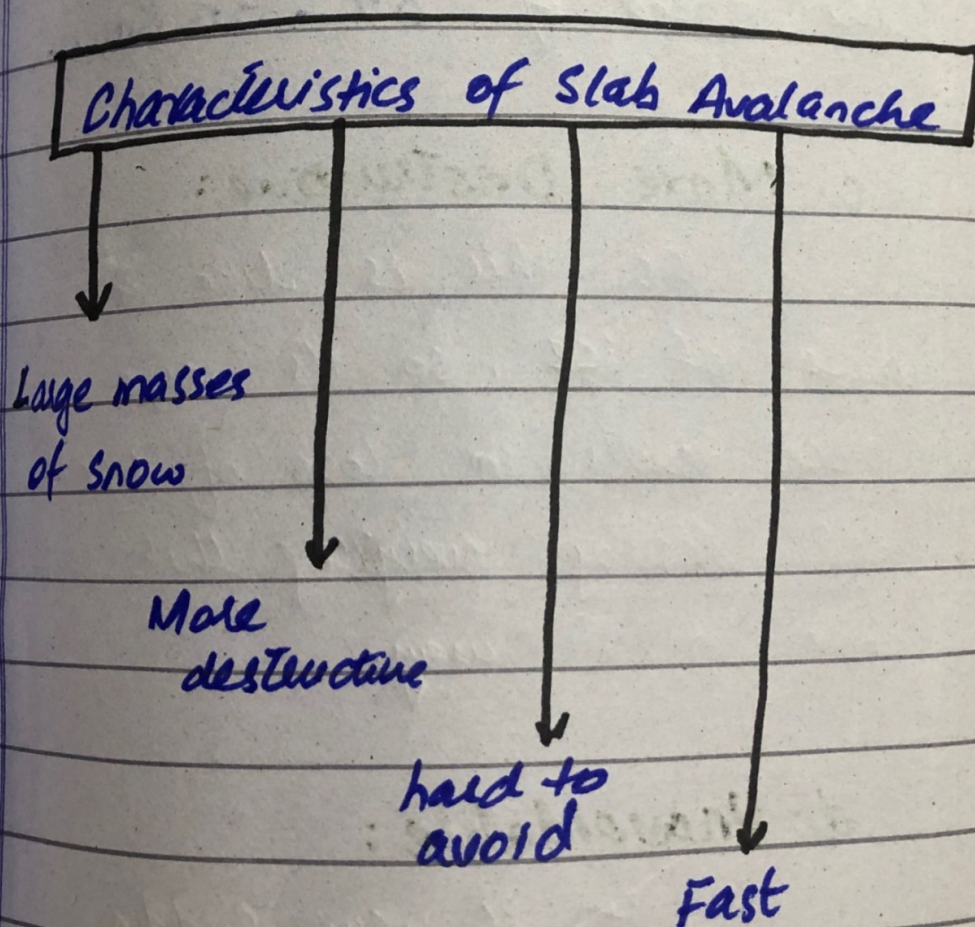 Characteristics of Slab Avalanche
Large masses
of snow
More
destructive
hard to
avoid
Fast